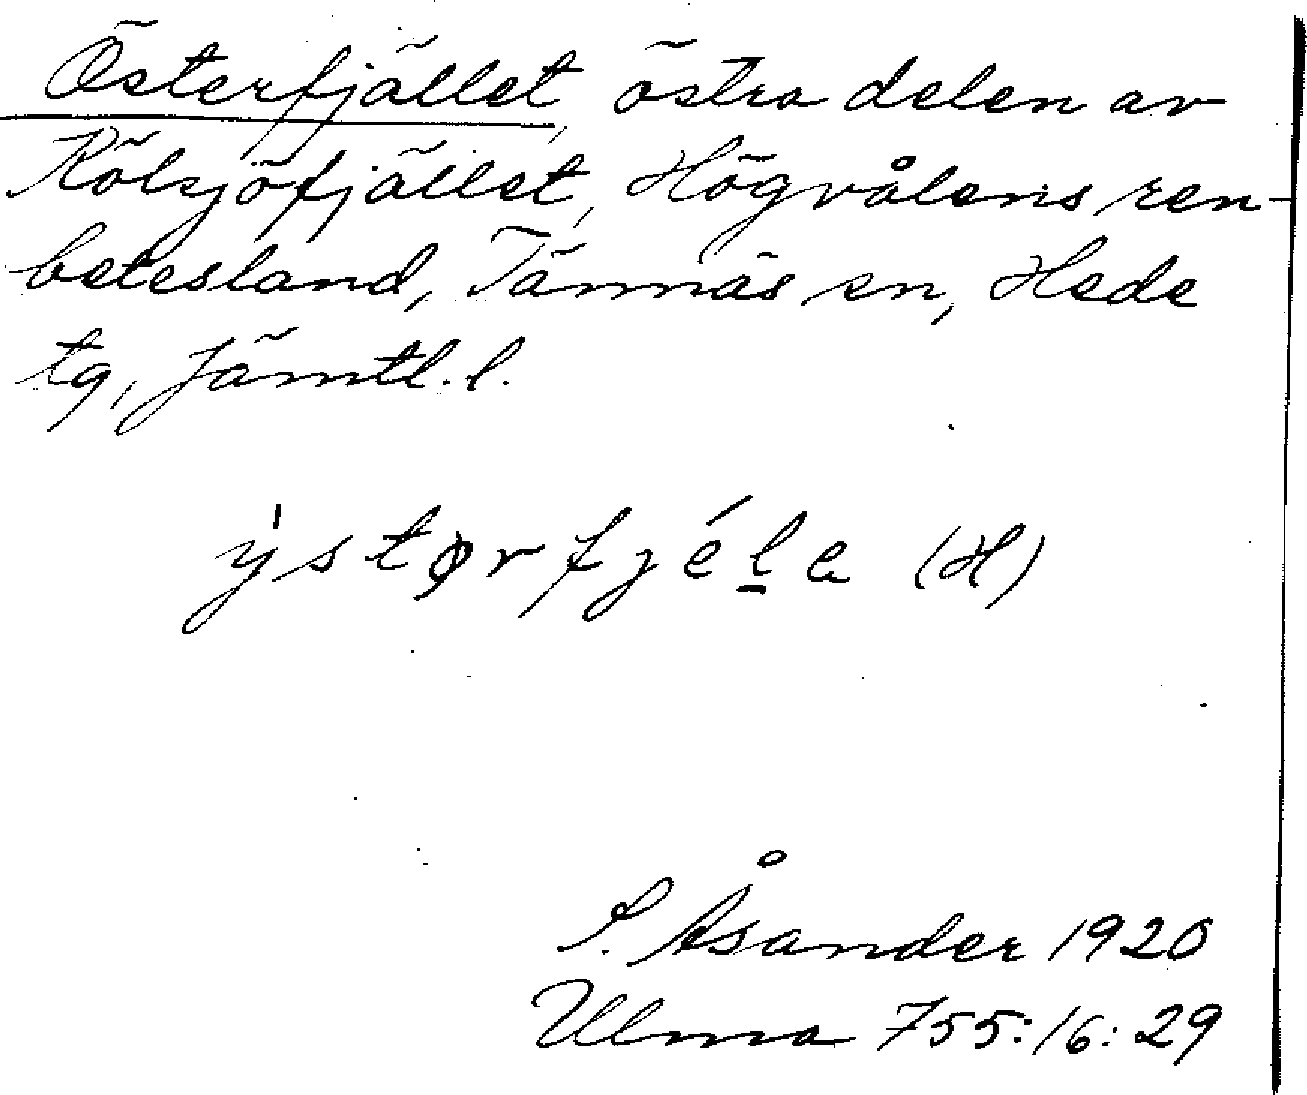 Österfjället, östra delen av
Kölsjöfjället, Högvålens ren-
betesland, Tännäs sn, Hede
tg, Jämtl. l.
ýstørfjéla (H)
S. Åsander 1920
Ulma 755:16:29